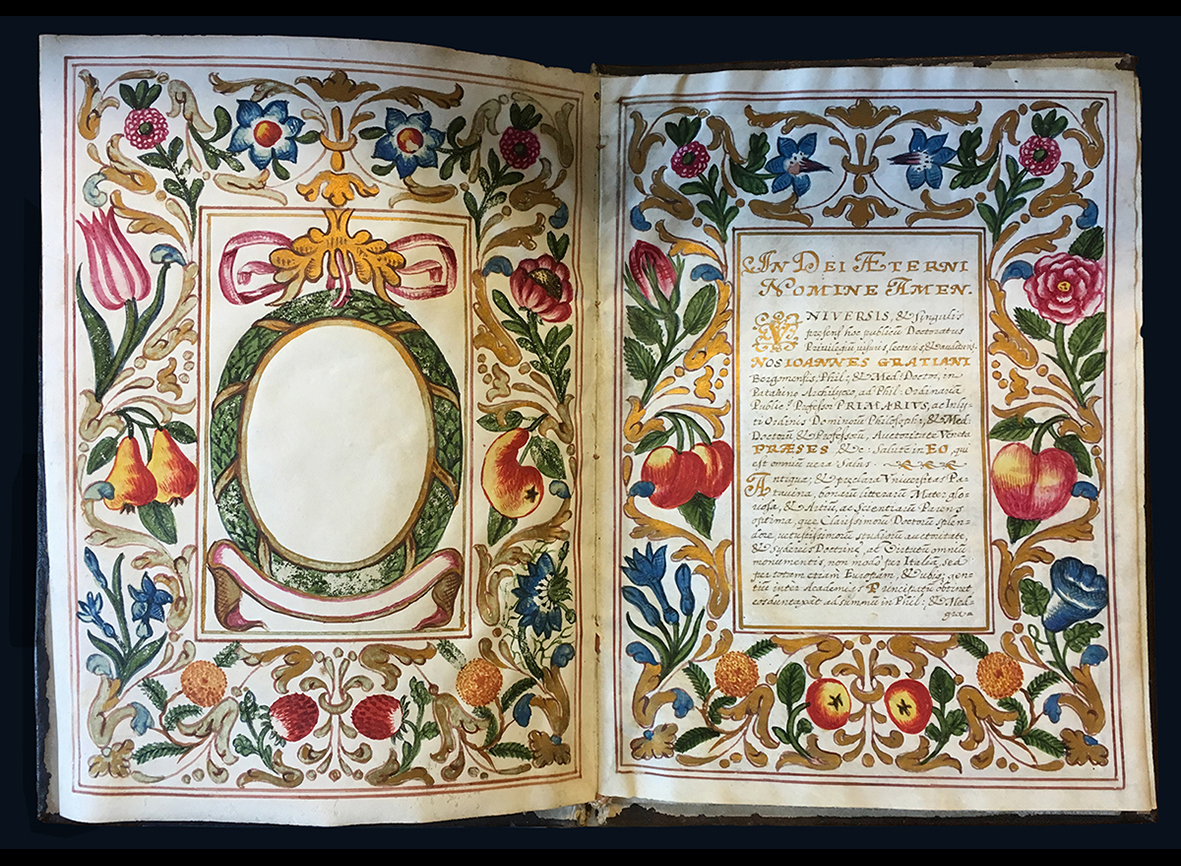 IN DEI ÆTERNI
NOMINE AMEN.
VNIVERSIS, & singulis
præsens hoc publicū Doctoratus
Privilegiū visuris, lecturis, & audituris.
NOS IOANNES GRATIANI
Bergomensis, Phil:, & Med: Doctor, in
Patavino Archilyceo, ad Phil: Ordinariā
Public' Professor PRIMARIVS, ac Incly-
ti Ordinis Dominorū Philosophor', & Med:
Doctorū, & Professorū, Auctoritate Veneta
PRÆSES &c. Salutē in EO, qui
est omniū vera Salus.
Antiqua, & præclara Vniversitas Pa-
tavina, bonarū litterarū Mater glo-
riosa, & Artiū, ac Scientiarū Parens
optima, quæ Clarissimorū Doctorū splen-
dore, vetustissimorū studiorū auctoritate,
& syderūs Doctrinæ, ac Virtutū omniū
monumentis, non modo per Italiā, sed
per totam etiam Europam, & Vbiq; gen-
tiū inter Academias Principatū obtinet,
eos duntaxat ad summū in Phil:, & Med:
gra=